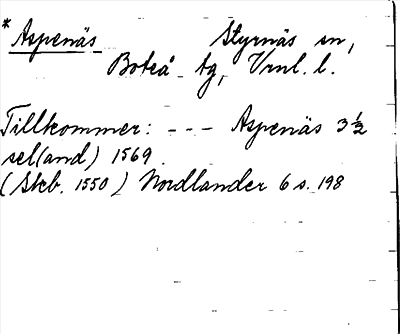 * Aspenäs Styrnäs sn,
Boteå tg, Vrnl. l.
Tillkommer: - - - Aspenäs 3 ½
sel(and) 1569.
(Skb. 1550) Nordlander 6 s. 198